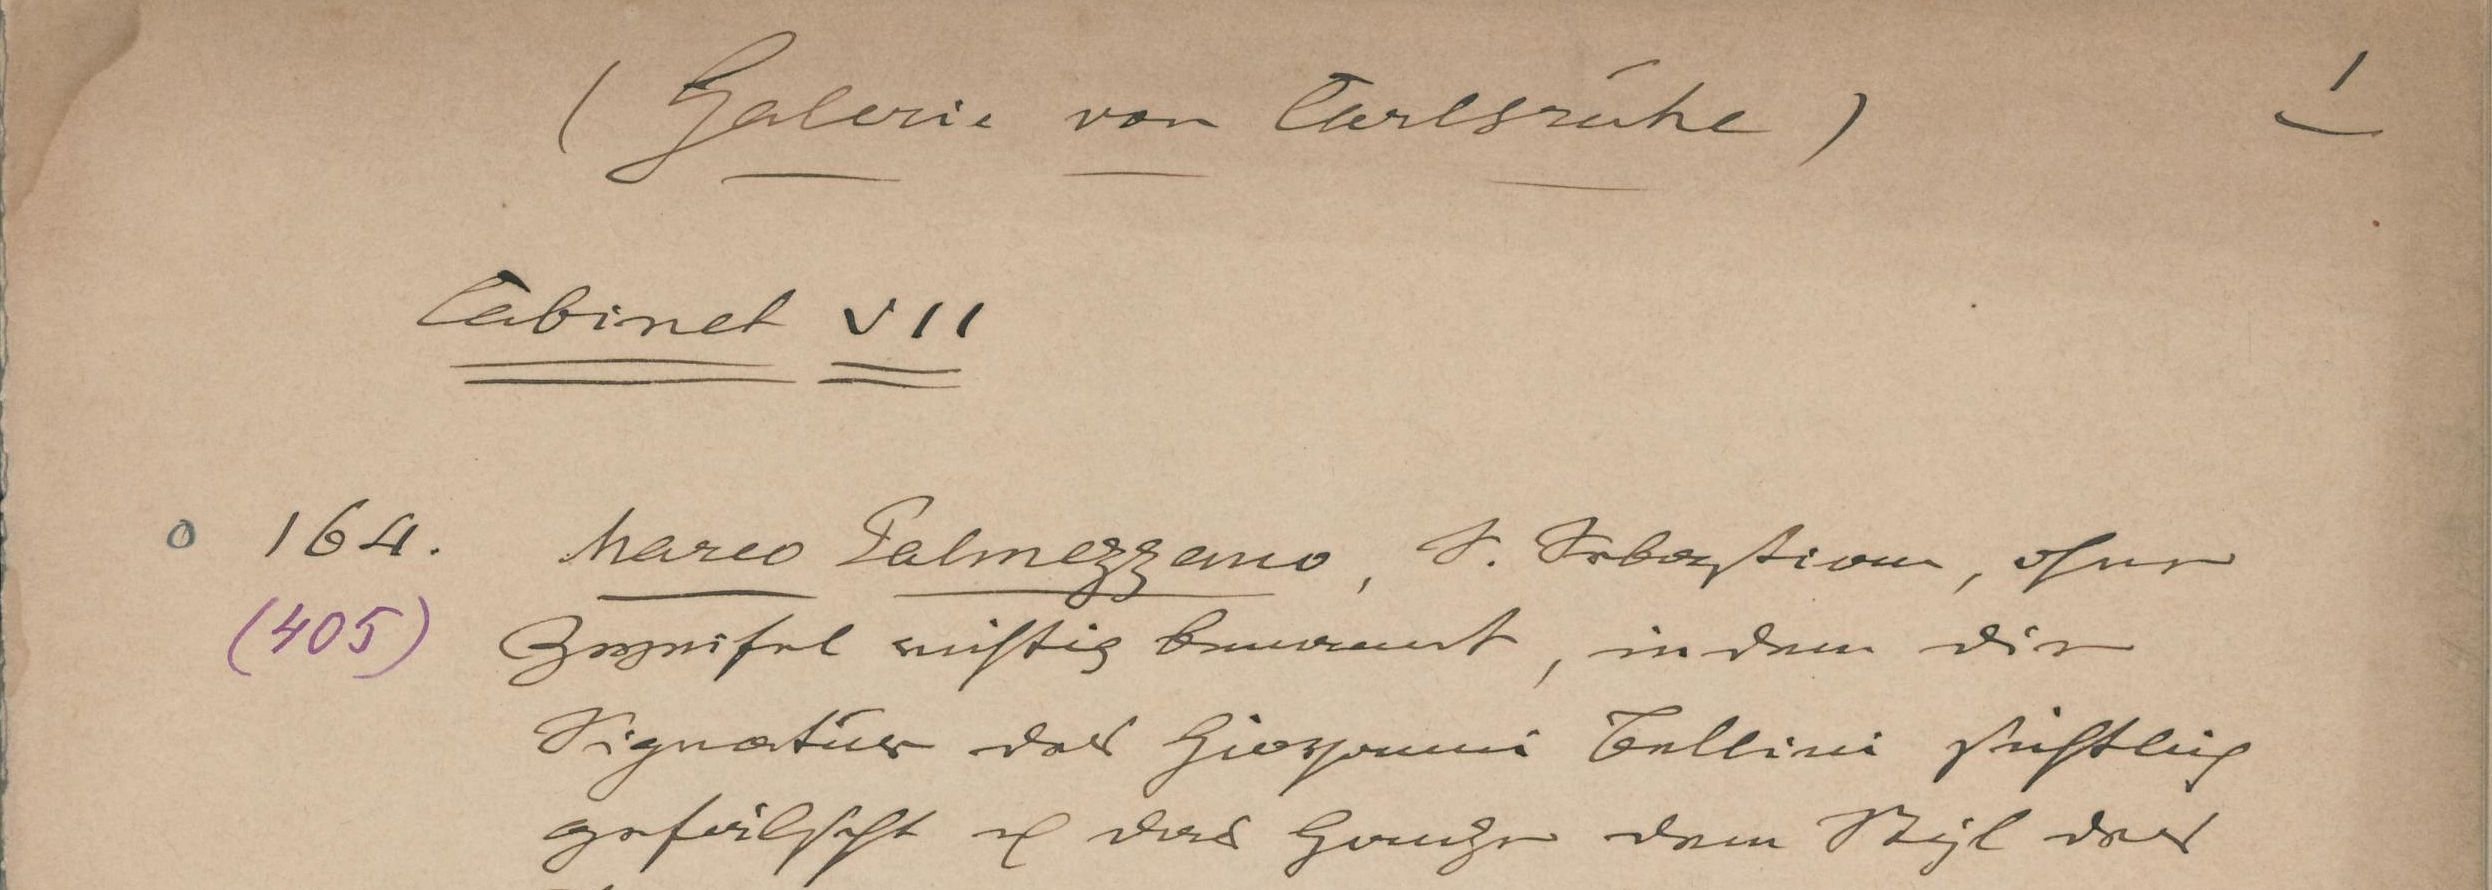 ( Galerie von Carlsruhe )
1
Cabinet VII
o 164. Marco Palmezzano, S. Sebastian, ohne
(405) Zweifel richtig benannt, indem die
Signatur des Giovanni Bellini sichtlich
gefälscht & das Ganze dem Styl des